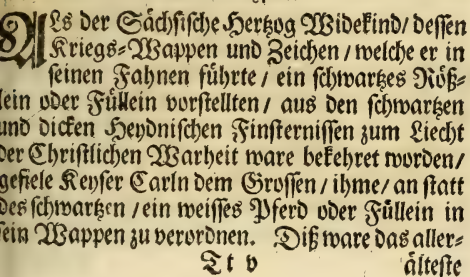 Als der Sächsische Hertzog Widekind/ dessen
Kriegs=Wappen und Zeichen / welche er in
seinen Fahnen führte / ein schwartzes Röß=
lein oder Füllein vorstellten / aus den schwartzen
und dicken Heydnischen Finsternissen zum Liecht
der Christlichen Warheit ware bekehret worden/
gefiele Keyser Carln dem Grossen / ihme/ an statt
des schwartzen / ein weisses Pferd oder Füllein in
sein Wappen zu verordnen. Diß ware das aller=
Tt v
älteste